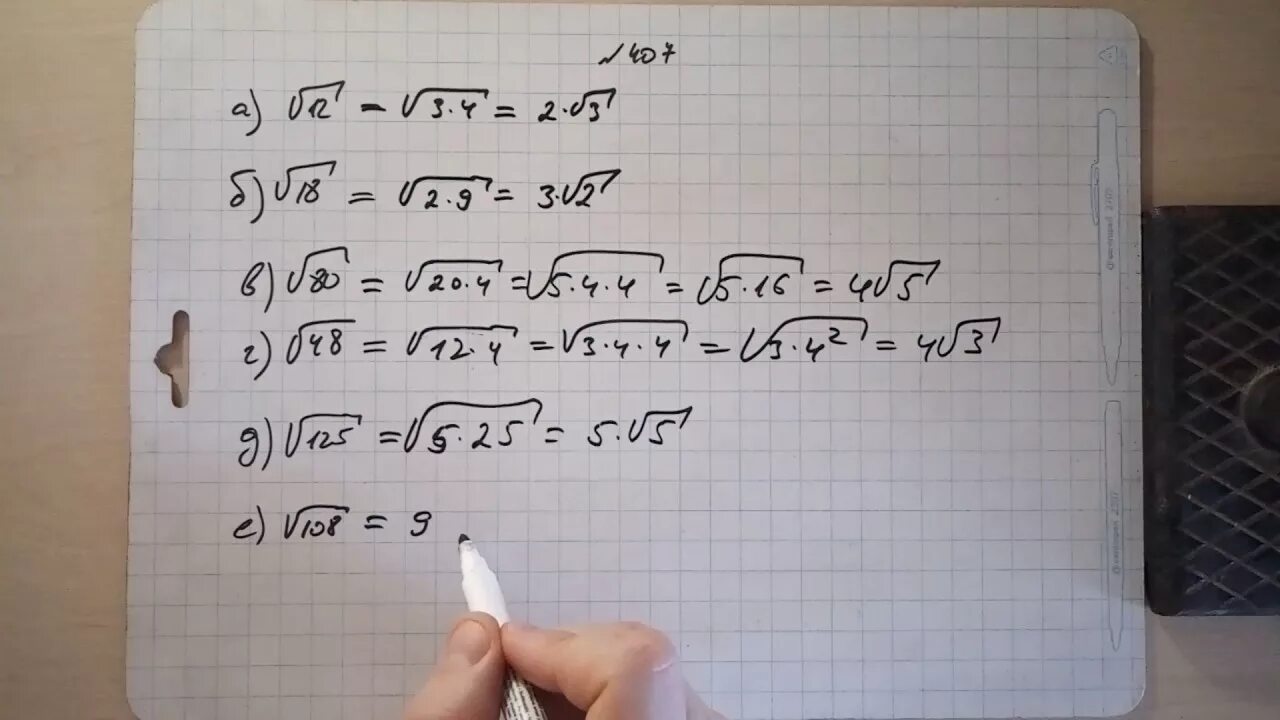 №407
а) √12 = √3·4 = 2·√3
б) √18 = √2·9 = 3·√2
в) √80 = √20·4 = √5·4·4 = √5·16 = 4√5
г) √48 = √12·4 = √3·4·4 = √3·4² = 4√3
д) √125 = √5·25 = 5·√5
е) √108 = 9